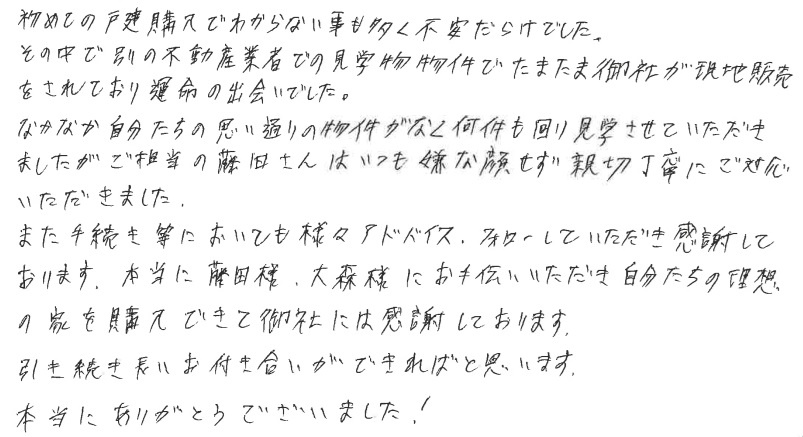 初めての戸建購入でわからない事も多く不安だらけでした。
その中で別の不動産業者での見学物物件でたまたま御社が現地販売
をされており運命の出会いでした。
なかなか自分たちの思い通りの物件がなく何件も回り見学させていただき
ましたがご担当の藤田さんはいつも嫌な顔せず親切丁寧にご対応
いただきました。
また手続き等においても様々アドバイス、フォローしていただき感謝して
おります。本当に藤田様、大森様にお手伝いいただき自分たちの理想
の家を購入できて御社には感謝しております。
引き続き長いお付き合いができればと思います。
本当にありがとうございました!